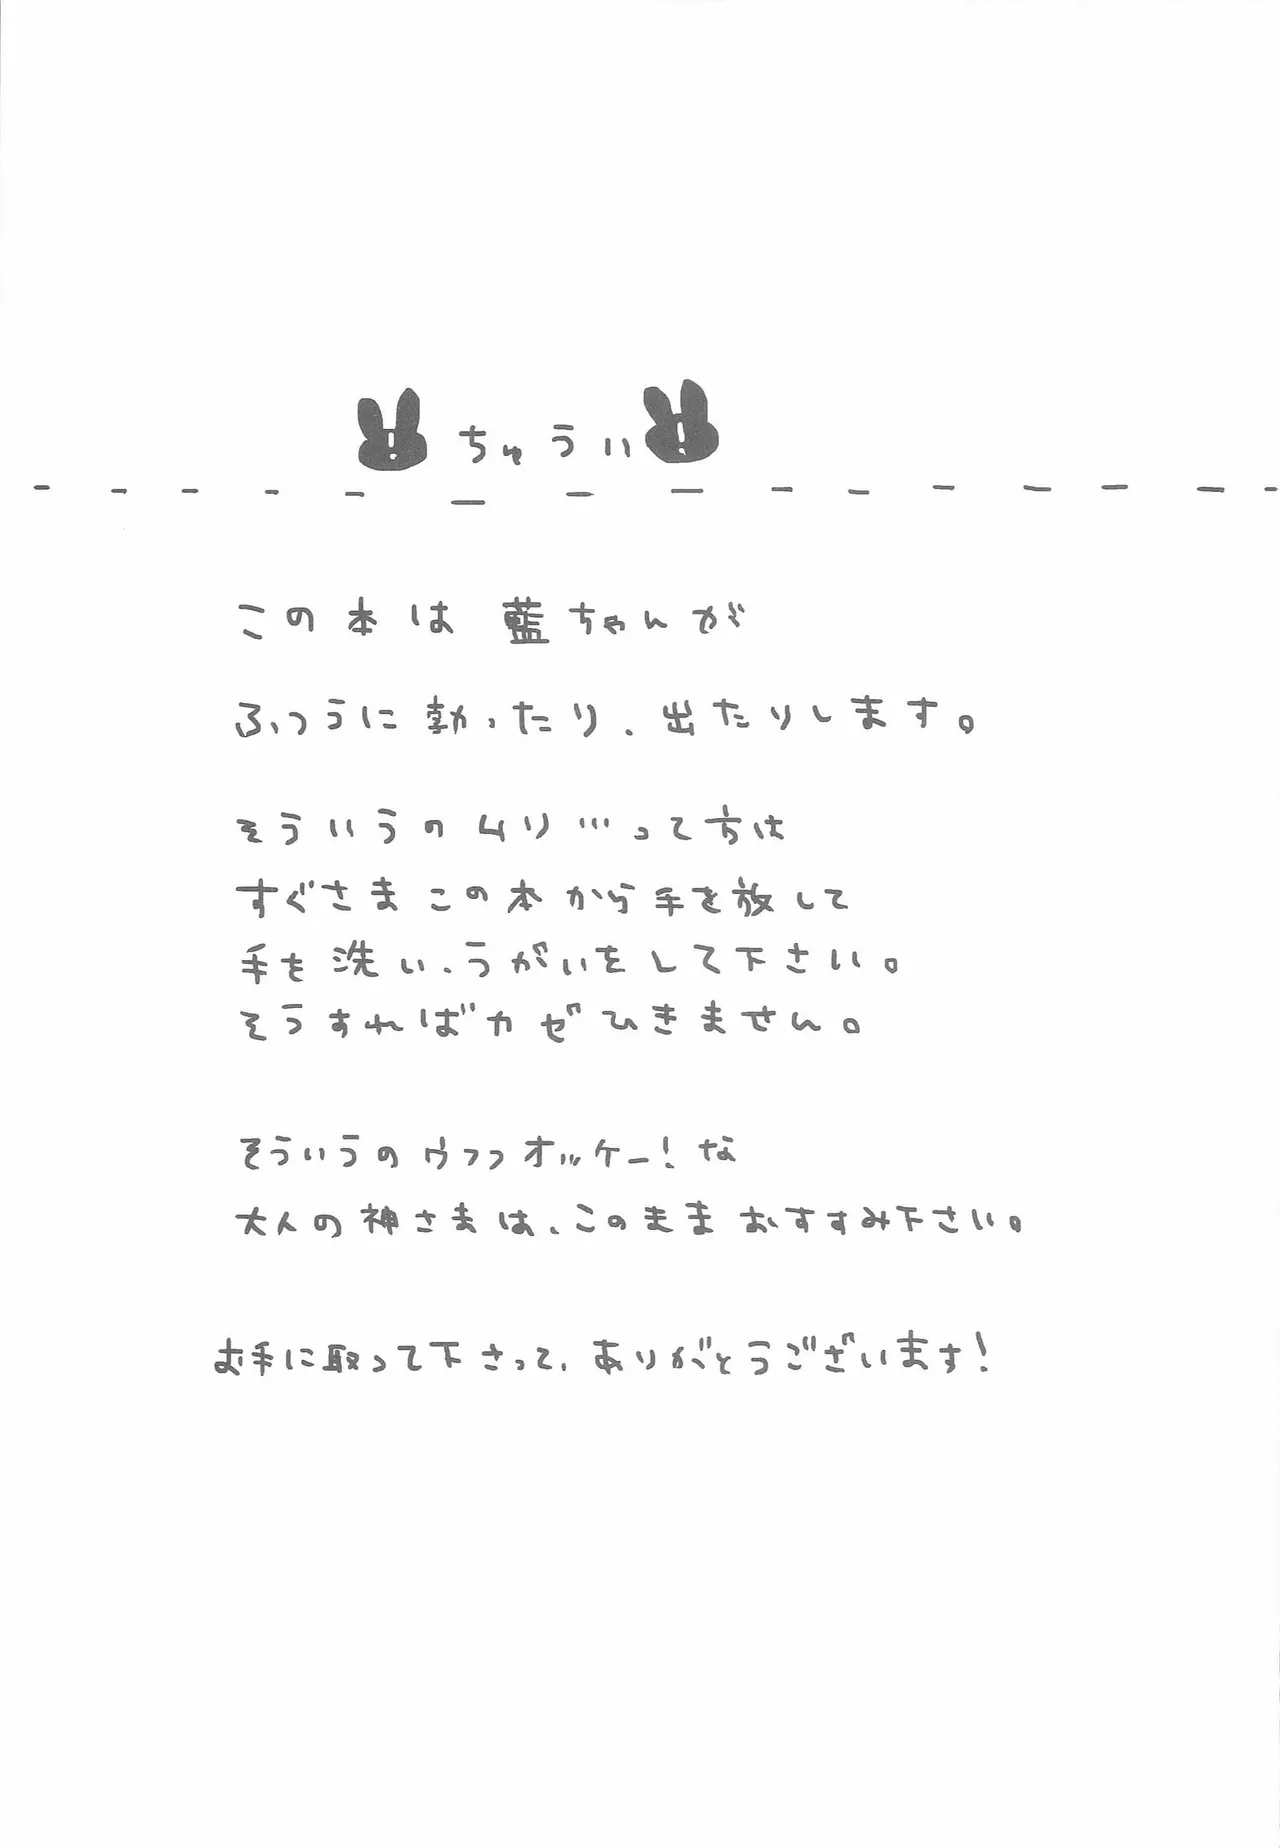 ちゅうい
この本は藍ちゃんが
ふつうに勃ったり、出たりします。
そういうのムリ…って方は
すぐさまこの本から手を放して
手を洗い、うがいをして下さい。
そうすればカゼひきません。
そういうのウフフオッケー!な
大人の神さまは、このままおすすみ下さい。
お手に取って下さって、ありがとうございます!